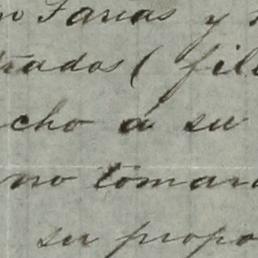 n Farias y
trados ( fil
cho á su
no tomar
su propo